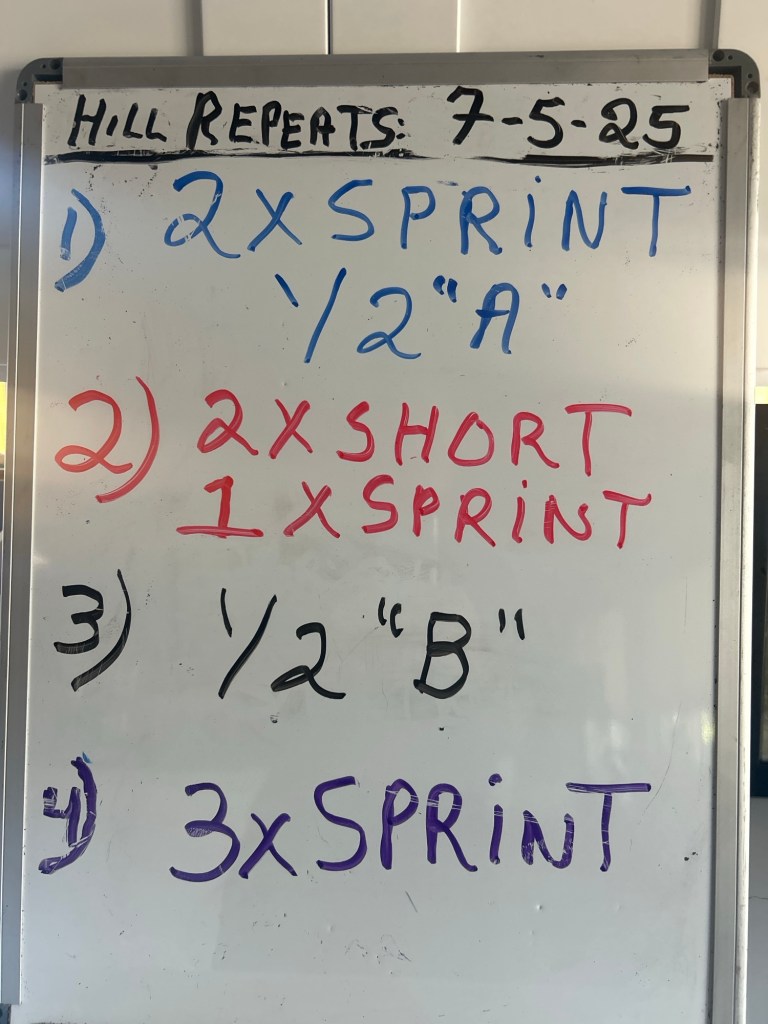 HILL REPEATS: 7-5-25
1) 2X SPRINT
1/2 "A"
2) 2X SHORT
1 X SPRINT
3) 1/2 "B"
4) 3X SPRINT